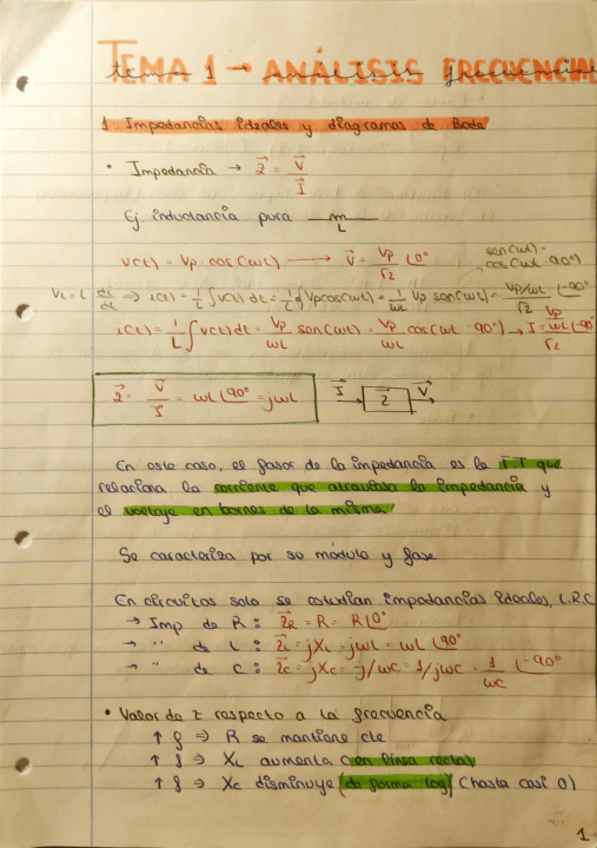 TEMA 1 → ANÁLISIS FRECUENCIAL
1. Impedancias ideales y diagramas de Bode
• Impedancia → Z = V/I
Ej inductancia pura L
v(t) = Vp·cos(ωt) → V = Vp/√2 ∠0°
sen(ωt) = cos(ωt-90°)
VL = L di/dt ⇒ i(t) = 1/L ∫v(t) dt = 1/L ∫Vp cos(ωt) = 1/ωL Vp sen(ωt) = Vp/ωL /√2 ∠-90°
i(t) = 1/L ∫v(t) dt = Vp/ωL sen(ωt) = Vp/ωL cos(ωt - 90°) → I = Vp/ωL /√2 ∠-90°
Z = V/I = ωL ∠90° = jωL
I → Z → V
En este caso, el fasor de la impedancia es la FT que
relaciona la corriente que atraviesa la impedancia y
el voltaje en bornes de la misma
Se caracteriza por su módulo y fase
En circuitos solo se estudian impedancias ideales, L,R,C
→ Imp de R: ZR = R = R ∠0°
→ " de L: ZL = jXL = jωL = ωL ∠90°
→ " de C: ZC = jXC = -j/ωC = 1/jωC = 1/ωC ∠-90°
• Valor de Z respecto a la frecuencia
↑ f ⇒ R se mantiene cte
↑ f ⇒ XL aumenta (en línea recta)
↑ f ⇒ XC disminuye (de forma log) (hasta casi 0)
1